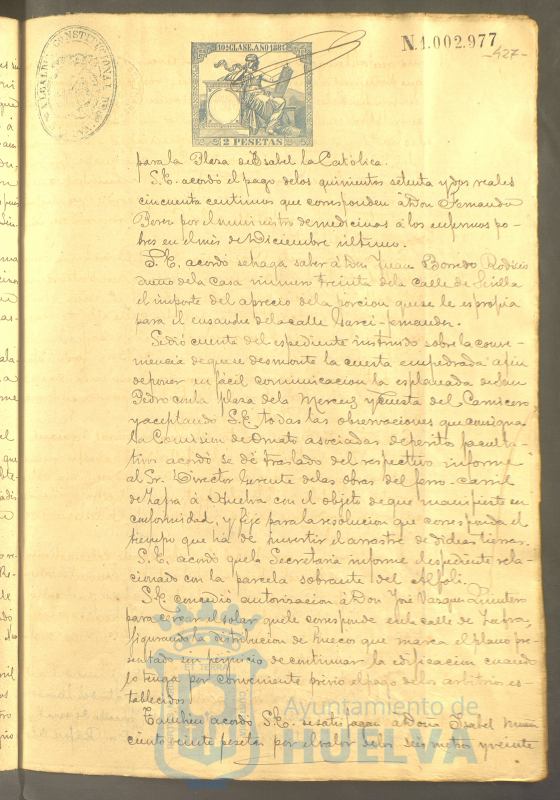 ALCALDIA CONSTITUCIONAL DE
10ª CLASE. AÑO 1881
2 PESETAS
N.1.002.977
-427-
para la Plaza de Isabel la Católica.
S.E. acordó el pago de los quinientos setenta y dos reales
cincuenta centimos que corresponden á Don Fernando
Perez por el suministro de medicinas á los enfermos po-
bres en el mes de Diciembre ultimo.
S.E. acordó se haga saber á Don Juan Borrero
dueño de la Casa número treinta de la calle de Sevilla
el importe del aprecio de la porcion que se le espropia
para el ensanche de la calle
Se dió cuenta del espediente instruido sobre la conve-
niencia de que se desmonte la cuesta empedrada á fin
de poner en fácil comunicacion la esplanada de San
Pedro con la plaza de la Merced y Cuesta del Carnicero
y aceptando S.E. todas las observaciones que consigna
la Comision de Ornato asociada de perito faculta-
tivos acordó se dé traslado del respectivo informe
al Sr. Director Gerente de las obras del ferro-carril
de Zafra á Huelva con el objeto de que manifieste su
conformidad, y fije para la resolucion que corresponda el
tiempo que ha de invertir el arrastre de dichas tierras.
S.E. acordó que la Secretaria informe el espediente rela-
cionado con la parcela sobrante del Alfolí.
S.E. concedió autorizacion á Don José Vazquez Quintero
para cercar el solar que le corresponde en la calle de
figurando la distribucion de huecos que marca el plano pre-
sentado sin perjuicio de continuar la edificacion cuando
lo tenga por conveniente previo el pago de los arbitrios es-
tablecidos.
Tambien acordó S.E. se satisfagan á Doña Isabel
ciento veinte pesetas por el valor de los seis metros y veinte
Ayuntamiento de
HUELVA